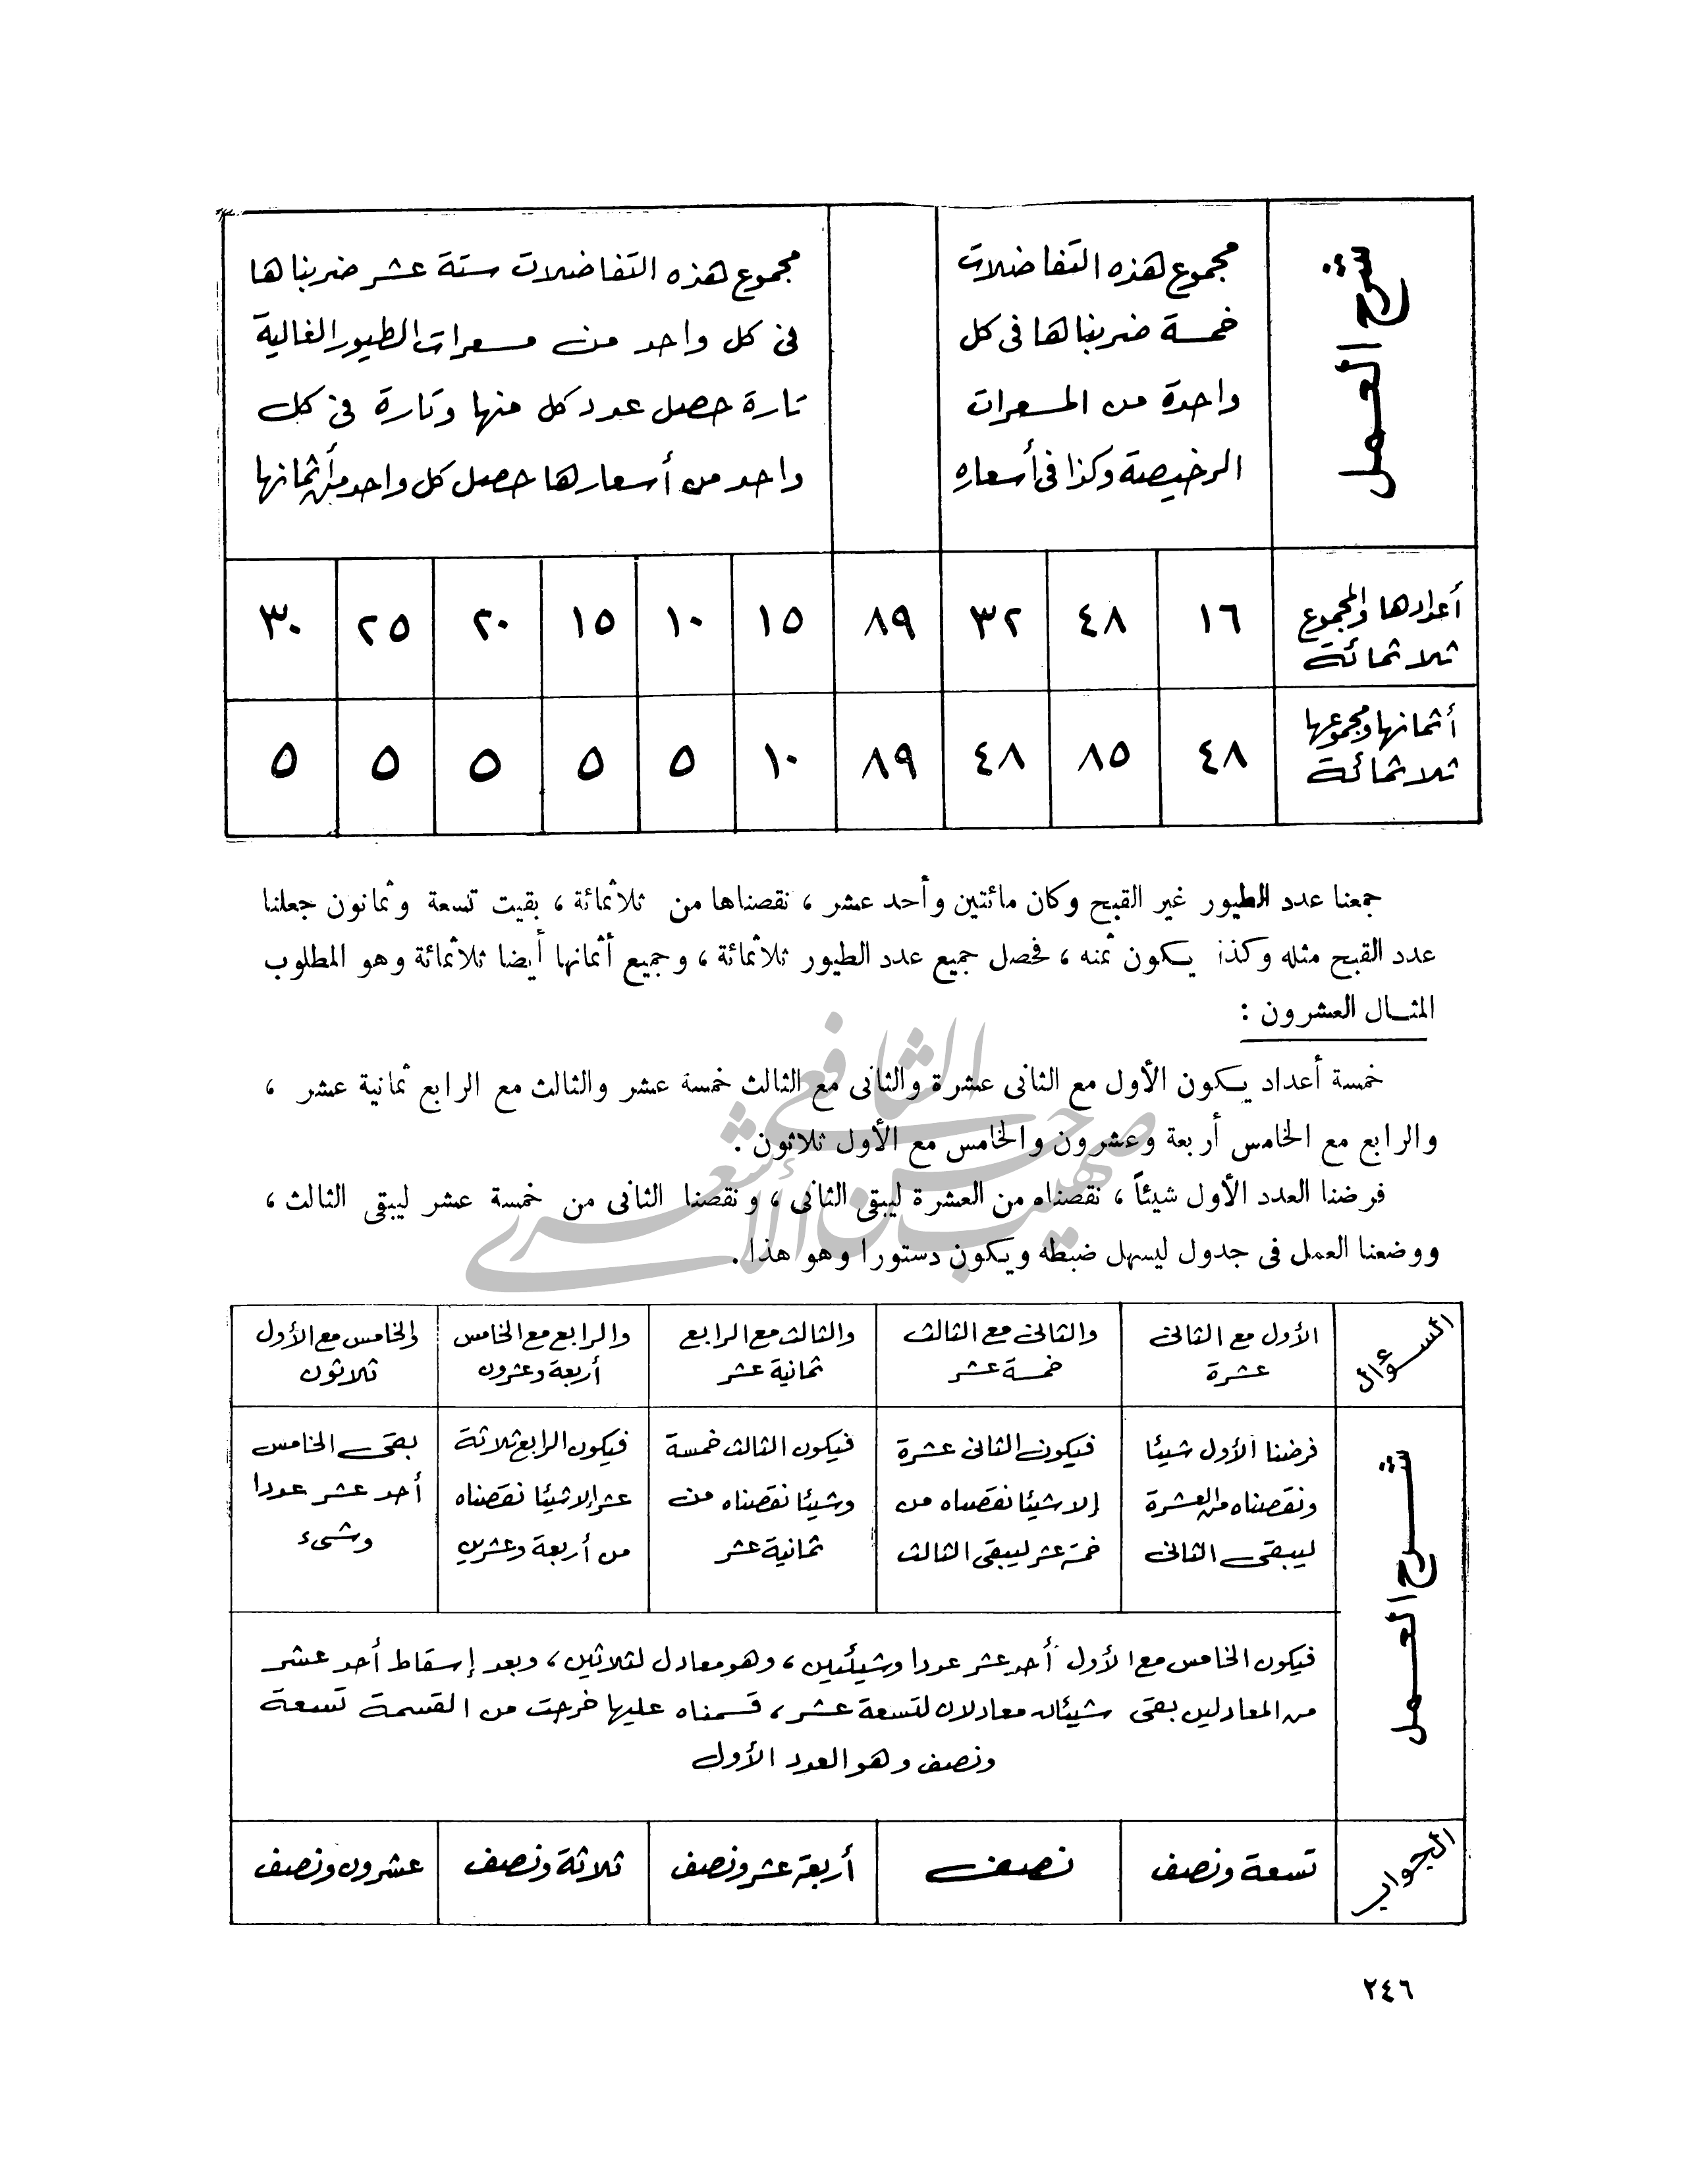 شرح العمل
مجموع هذه التفاضلات
خمسة ضربناها فى كل
واحدة من المسعرات
الرخيصة وكذا فى أسعاره
مجموع هذه التفاضلات ستة عشر ضربناها
فى كل واحد من مسعرات الطيور الغالية
تارة حصل عدد كل منها وتارة فى كل
واحد من أسعارها حصل كل واحد من أثمانها
أعدادها والمجموع
ثلاثمائة
١٦ ٤٨ ٣٢ ٨٩ ١٥ ١٠ ١٥ ٢٠ ٢٥ ٣٠
أثمانها ومجموعها
ثلاثمائة
٤٨ ٨٥ ٤٨ ٨٩ ١٠ ٥ ٥ ٥ ٥ ٥
جمعنا عدد الطيور غير القبح وكان مائتين وأحد عشر ، نقصناها من ثلاثمائة ، بقيت تسعة وثمانون جعلنا
عدد القبح مثله وكذا يكون ثمنه ، فحصل جميع عدد الطيور ثلاثمائة ، وجميع أثمانها أيضا ثلاثمائة وهو المطلوب
المثال العشرون :
خمسة أعداد يكون الأول مع الثانى عشرة والثانى مع الثالث خمسة عشر والثالث مع الرابع ثمانية عشر ،
والرابع مع الخامس أربعة وعشرون والخامس مع الأول ثلاثون .
فرضنا العدد الأول شيئاً ، نقصناه من العشرة ليبقى الثانى ، ونقصنا الثانى من خمسة عشر ليبقى الثالث ،
ووضعنا العمل فى جدول ليسهل ضبطه ويكون دستورا وهو هذا .
صهيب حسن الشافعي الأشعري
السؤال
الأول مع الثانى
عشرة
والثانى مع الثالث
خمسة عشر
والثالث مع الرابع
ثمانية عشر
والرابع مع الخامس
أربعة وعشرون
والخامس مع الأول
ثلاثون
شرح العمل
فرضنا الأول شيئا
ونقصناه من العشرة
ليبقى الثانى
فيكون الثانى عشرة
إلا شيئا نقصناه من
خمسة عشر ليبقى الثالث
فيكون الثالث خمسة
وشيئا نقصناه من
ثمانية عشر
فيكون الرابع ثلاثة
عشر إلا شيئا نقصناه
من أربعة وعشرين
بقى الخامس
أحد عشر عددا
وشىء
فيكون الخامس مع الأول أحد عشر عددا وشيئين ، وهو معادل لثلاثين ، وبعد إسقاط أحد عشر
من المعادلين بقى شيئان معادلان لتسعة عشر ، قسمناه عليها خرجت من القسمة تسعة
ونصف وهو العدد الأول
الجواب
تسعة ونصف
نصف
أربعة عشر ونصف
ثلاثة ونصف
عشرون ونصف
٢٤٦